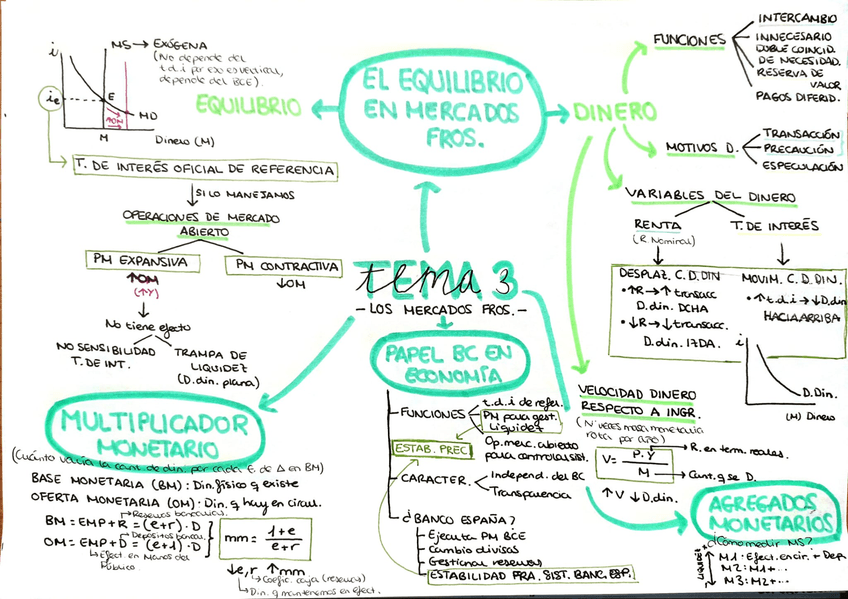 TEMA 3
- LOS MERCADOS FROS. -
EL EQUILIBRIO
EN MERCADOS
FROS.
EQUILIBRIO
i
MS → EXÓGENA
(No depende del
t.d.i por eso es vertical,
depende del BCE).
ie
E
↑OM
MD
M
Dinero (M)
T. DE INTERÉS OFICIAL DE REFERENCIA
SI LO MANEJAMOS
OPERACIONES DE MERCADO
ABIERTO
PM EXPANSIVA
↑OM
(↑Y)
PM CONTRACTIVA
↓OM
No tiene efecto
NO SENSIBILIDAD
T. DE INT.
TRAMPA DE
LIQUIDEZ
(D.din. plana)
DINERO
FUNCIONES
INTERCAMBIO
INNECESARIO
DOBLE COINCID.
DE NECESIDAD.
RESERVA DE
VALOR
PAGOS DIFERID.
MOTIVOS D.
TRANSACCIÓN
PRECAUCIÓN
ESPECULACIÓN
VARIABLES DEL DINERO
RENTA
(R. Nominal)
T. DE INTERÉS
DESPLAZ. C.D.DIN
• ↑R → ↑ transacc
D.din. DCHA
• ↓R → ↓ transacc.
D.din. IZDA.
MOVIM. C.D.DIN.
• ↑ t.d.i → ↓ D.din
HACIA ARRIBA
i
D.Din.
(M) Dinero
VELOCIDAD DINERO
RESPECTO A INGR.
(Nº veces masa monetaria
rota por año)
V = P.Y / M
R. en term. reales.
Cant. q se D.
↑V ↓D.din.
PAPEL BC EN
ECONOMÍA
FUNCIONES
t.d.i de refer.
PM para gest.
Liquidez
Op. merc. abierto
para controlar sist.
ESTAB. PREC
CARACTER.
Independ. del BC
Transparencia
¿BANCO ESPAÑA?
Ejecuta PM BCE
Cambio divisas
Gestionar reservas
ESTABILIDAD FRA. SIST. BANC. ESP.
MULTIPLICADOR
MONETARIO
(Cuánto varía la cant. de din. por cada € de Δ en BM)
BASE MONETARIA (BM): Din. físico q existe
OFERTA MONETARIA (OM): Din. q hay en circul.
Reservas bancarias.
BM = EMP + R = (e+r) · D
Depósitos bancar.
OM = EMP + D = (e+1) · D
Efect. en Manos del
Público
mm = 1+e / e+r
↓e, r ↑mm
Coefic. caja (reservas)
Din. q mantenemos en efect.
AGREGADOS
MONETARIOS
¿Cómo medir MS?
LIQUIDEZ
M1: Efect. en cir. + Dep.
M2: M1 + ..
M3: M2 + ...